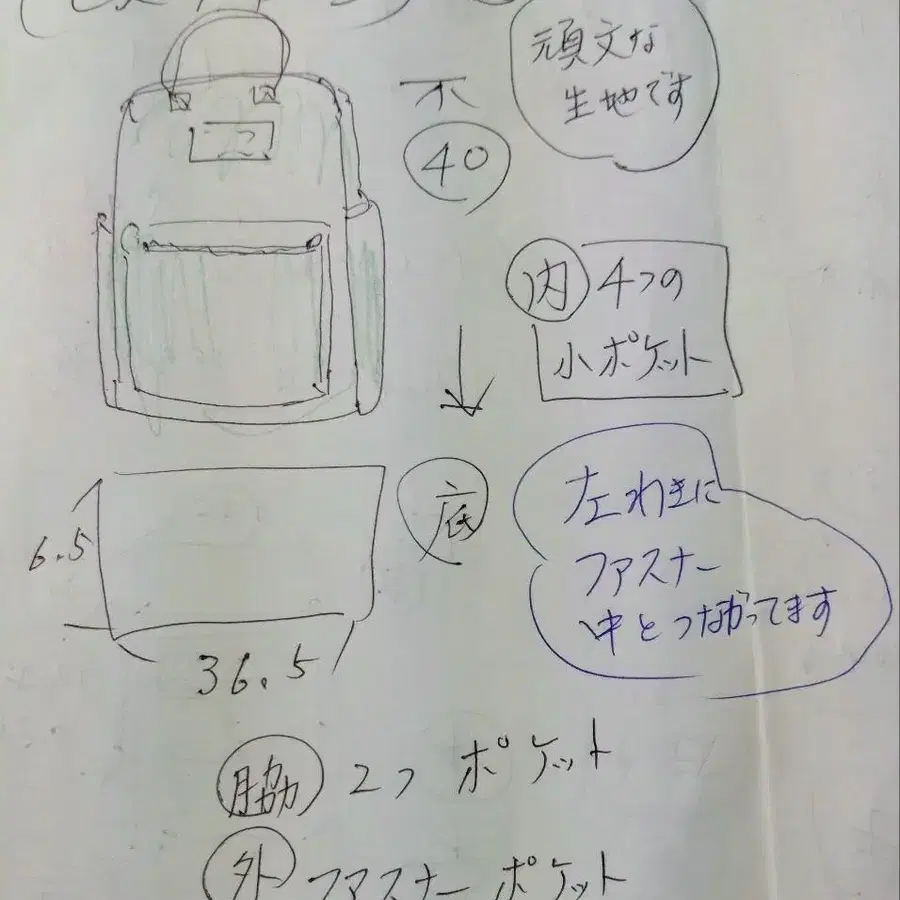 頑文な
生地です
40
内 4つの
小ポケット
底
6.5
36.5
左わきに
ファスナー
中とつながってます
脇 2つ ポケット
外 ファスナーポケット